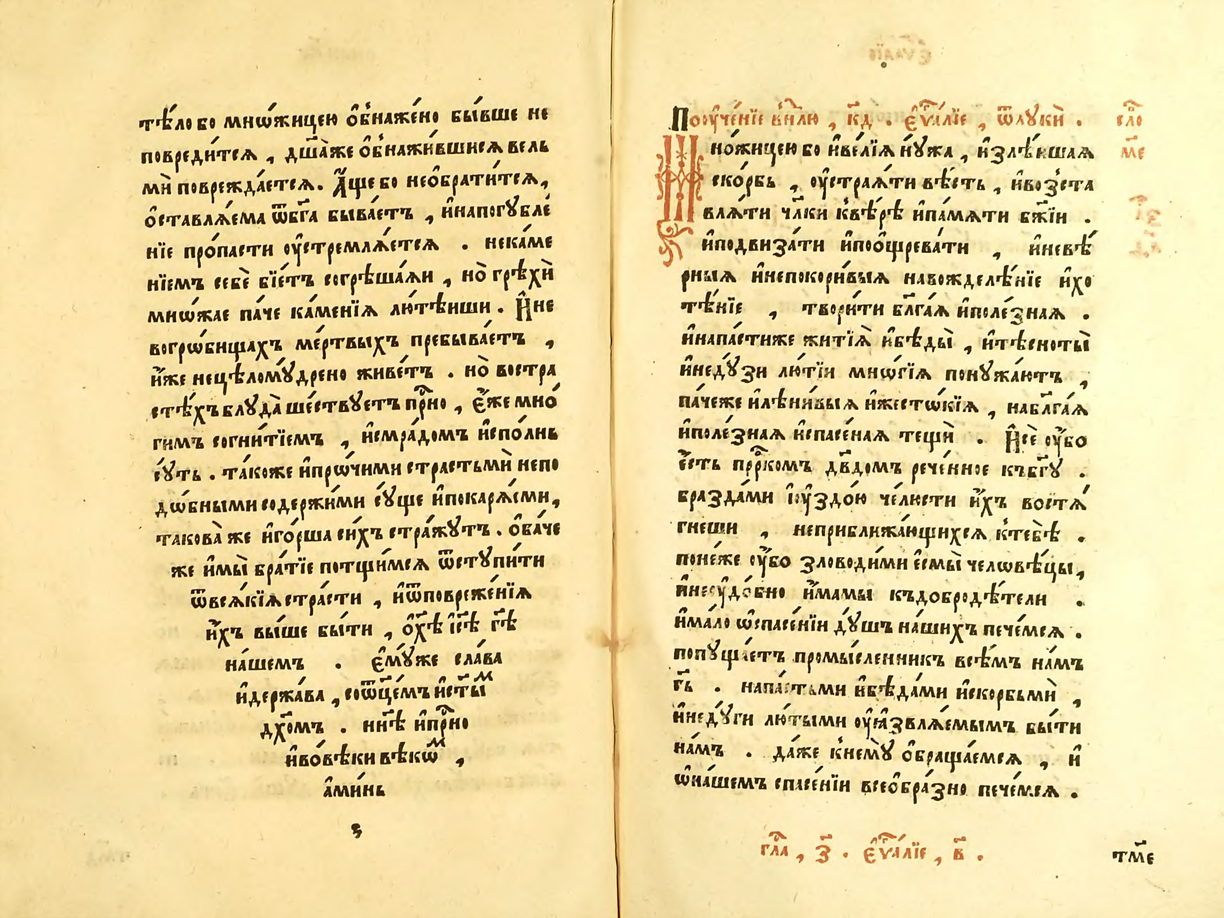 тѣ́ло бо мнѡ́жицею ѻ҆бнаже́но бы́вше не
повреди́тсѧ , дш҃а́же ѻ҆бнажи́вшиѧсѧ вель
мѝ поврежда́етсѧ. А҆́ще бо необрати́тсѧ,
ѻ҆ставлѧ́ема ѿбг҃а быва́етъ , и҆напогꙋ́бле
нїе про́пасти ᲂу҆стремлѧ́етсѧ . нека́ме
нїемъ себѐ бїе́тъ согрѣша́ѧи , но̀ грѣхѝ
мнѡ́жае па́че ка́менїѧ лютѣ́иши . И҆́не
вогро́бищахъ ме́ртвыхъ пребыва́етъ ,
и҆́же нецѣломꙋ́дрено живе́тъ . но̀ востра
стѣ́хъ блꙋда̀ ше́ствꙋетъ при́сно , є҆́же мно́
гимъ согни́тїемъ , и҆смра́домъ и҆спо́лнь
сꙋ́ть . та́коже и҆про́чими страстьмѝ непо
до́бными содержи́ми сꙋ́ще и҆покарѧ́еми,
такова̀ же и҆го́рша си́хъ стра́жꙋтъ . ѻ҆ба́че
же и҆мы̀ бра́тїе потщи́мсѧ ѿстꙋпи́ти
ѿвсѧ́кїѧ стра́сти , и҆ѿповреже́нїѧ
и҆́хъ вы́ше бы́ти , ѻ҆ хр҃тѣ̀ і҆с҃ѣ гд҃ѣ
на́шемъ . є҆мꙋ́же сла́ва
и҆держа́ва , соѿце́мъ и҆ст҃ымъ
дх҃омъ . нн҃ѣ и҆при́сно
и҆во́вѣки вѣкѡ́мъ ,
а҆ми́нь
Поᲂуче́нїе вн҃лю , к҃д . є҆ѵⷢ҇а́лїе , ѿлꙋки̑ .
сло
м҃е
Мно́жицею бо и҆ве́лїѧ нꙋ́жа , и҆злѣ́ишаѧ
ско́рбь , ᲂу҆страѧ́ти вѣ́сть , и҆возста
влѧ́ти чл҃ки квѣ́рѣ и҆па́мѧти бж҃їи .
и҆подвиза́ти и҆поᲂщрева́ти , и҆невѣ́
рныѧ и҆непокори́выѧ навожделѣ́нїе и҆хо
тѣ́нїе , твори́ти бл҃га́ѧ и҆поле́знаѧ .
и҆напа́стиже житїѧ̀ и҆бѣды̀ , и҆тѣсноты̀
и҆недꙋ́зи лю́тїи мнѡ́гїѧ понꙋжа́ютъ ,
па́чеже и҆лѣни́выѧ и҆жестѡ́кїѧ , набл҃га́ѧ
и҆поле́знаѧ и҆спасе́наѧ тещѝ . И҆́сѐ ᲂу҆́бо
є҆́сть прⷪ҇ро́комъ дв҃домъ рече́нное къбг҃ꙋ .
бразда́ми и҆ᲂу҆здо́ю че́люсти и҆́хъ востѧ́
гнеши , неприближа́ющихсѧ ктебѣ̀ .
поне́же ᲂу҆́бо зловоди́ми є҆смы̀ человѣ́цы,
и҆несᲂудо́бно и҆́мамы къдоброде́тели .
и҆ма́ло ѡ҆спасе́нїи дꙋ́шъ на́шихъ пече́мсѧ .
попꙋща́етъ промы́сленникъ всѣ́мъ на́мъ
гд҃ь . напа́стьми и҆бѣда́ми и҆скорбьмѝ ,
и҆недꙋ́ги лю́тыми ᲂу҆ѧзвлѧ́емымъ бы́ти
на́мъ . да́же кнемꙋ̀ ѻ҆браща́емсѧ , и҆
ѡ҆на́шемъ спасе́нїи всеѻбра́зно пече́мсѧ .
гл҃а , з҃ . є҆ѵⷢ҇а́лїе , в҃ .
тм҃е